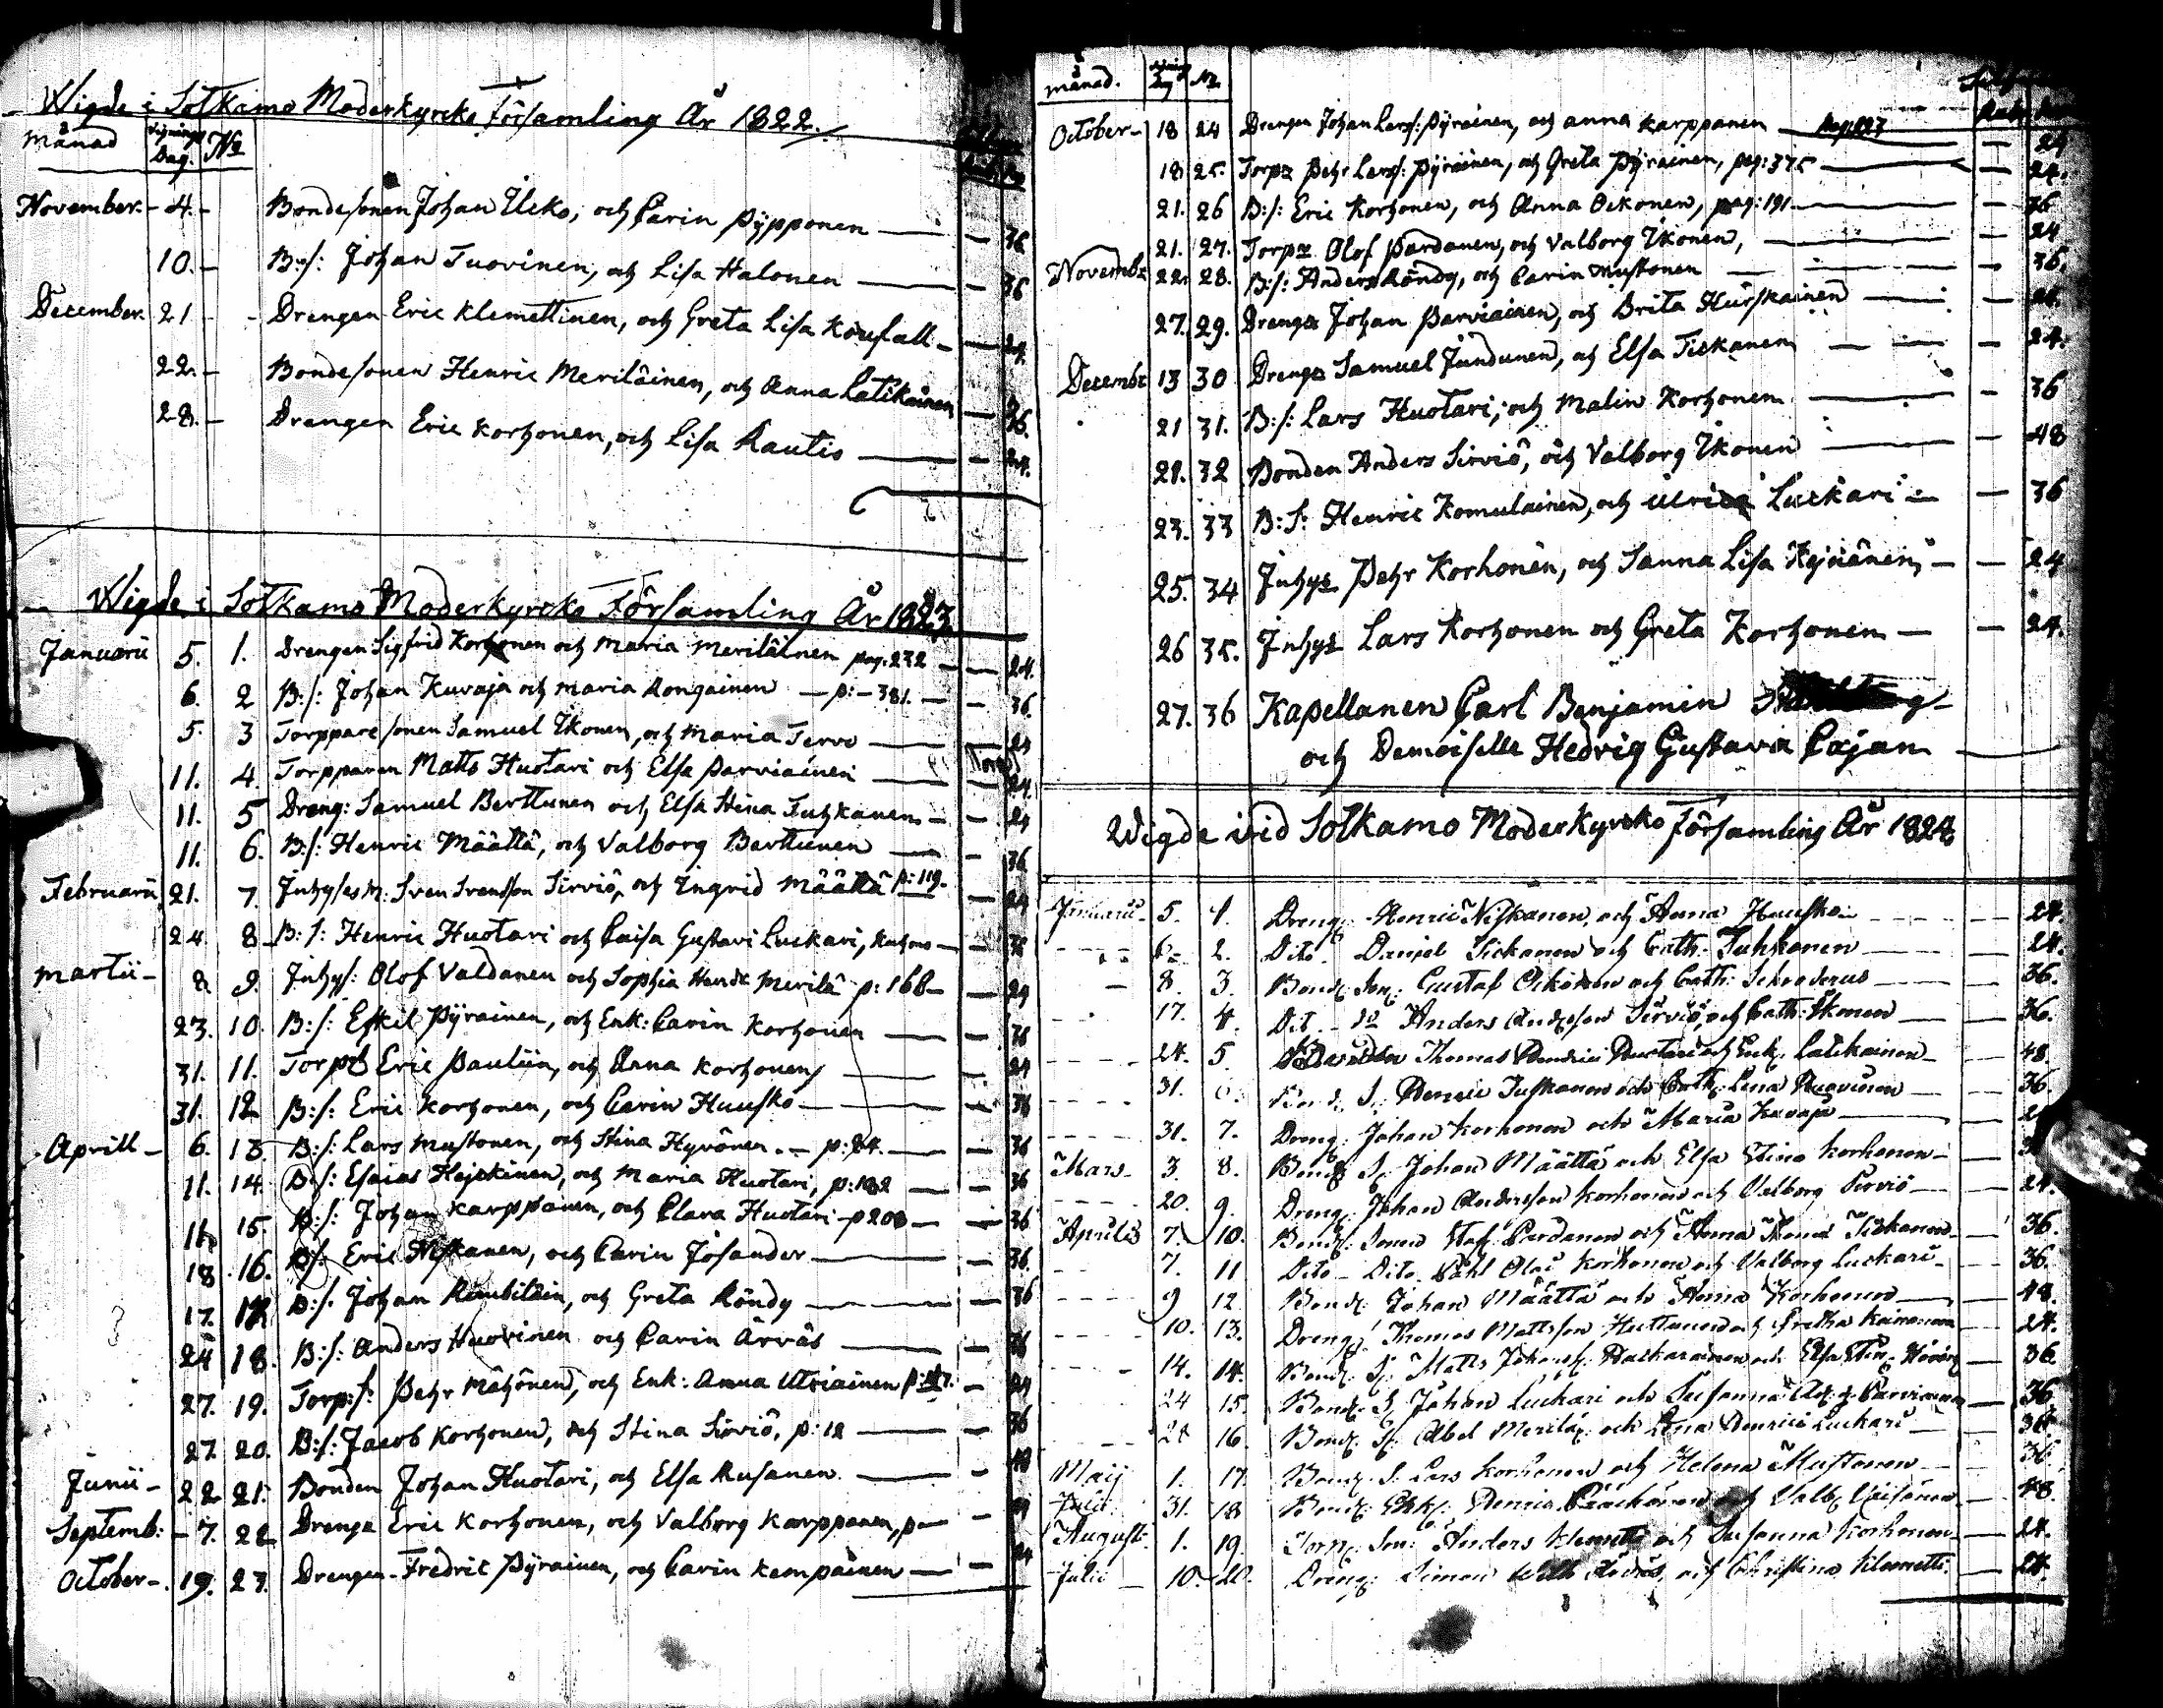 Wigde i Sotkamo Moderkyrcko Församling År 1822.
Månad Vignings Dag. No
November. - 4. - Bondesonen Johan Ucko, och Carin Pypponen - 36
10. - B:s: Johan Tuovinen, och Lisa Halonen - 36
December. 21 - Drengen Eric Klemettinen, och Greta Lisa - 24.
22. - Bondesonen Henric Meriläinen, och Anna Latikainen - 36.
28. - Drengen Eric Korhonen, och Lisa Rautio - 24.
Wigde i Sotkamo Moderkyrcko Församling År 1823
Januarii 5. 1. Drengen Sigfrid Korhonen och Maria Meriläinen pag. 232 - 24.
6. 2 B:s: Johan Kuvaja och Maria Rongainen - p: - 381. - 36.
5. 3 Torpparesonen Samuel Ikonen, och Maria Tervo - 24
11. 4. Torpparen Matts Huotari och Elsa Parviainen - 24.
11. 5 Dreng: Samuel Berttunen och Elsa Stina Tuhkanen - 24
11. 6. B:s: Henric Määttä, och Valborg Berttunen - 36
Februarii 21. 7. Inhyses M: Sven Svensson Sirviö, och Ingrid Määttä p: 119. - 24
24 8 B:s: Henric Huotari och Caisa Gustavi Luckari, - 36
Martii - 8. 9. Inhys: Olof Valdanen och Sophia Merilä p: 168 - 24
23. 10. B:s: Eskil Pyräinen, och Enk: Carin Korhonen - 36
31. 11. Torp: Eric Pauliin, och Anna Korhonen - 24
31. 12 B:s: Eric Korhonen, och Carin Huusko - 36
Aprill - 6. 13. B:s: Lars Mustonen, och Stina Hyvönen. - p: 24. - 36
11. 14. B:s: Esaias Hejskinen, och Maria Huotari, p: 182 - 36
11. 15 B:s: Johan Karppanen, och Clara Huotari - p 208 - 36
18 16. B:s: Eric Niskanen, och Carin Josander - 36
17. 17 B:s: Johan och Greta Röndy - 36
24 18. B:s: Anders Huovinen och Carin Ärväs - 36
27. 19. Torp:s: Pehr Mähönen, och Enk: Anna Utriainen - 24
27. 20. B:s: Jacob Korhonen, och Stina Sirviö, p: 12 - 36
Junii - 22 21. Bonden Johan Huotari, och Elsa Rusanen - 48
Septemb: - 7. 22 Drengn Eric Korhonen, och Valborg Karppanen, p - 24
October -. 19. 23. Drengen Fredric Pyräinen, och Carin Kempainen - 24
månad. Dag No
October - 18 24 Drengen Johan Lars: Pyräinen, och Anna Karppanen - 24
18 25. Torpn Pehr Lars: Pyräinen, och Greta Pyräinen, pag: 375 - 24.
21. 26 B:s: Eric Korhonen, och Anna Ockonen, pag: 191 - 36
21. 27. Torpn Olof Pardanen, och Valborg Ikonen, - 24
Novembr 22. 28. B:s: Anders Röndy, och Carin Mustonen - 36.
27. 29. Drengn Johan Parviainen, och Brita Hurskainen - 24.
Decembr 13 30 Drengn Samuel Jundunen, och Elsa Tickanen - 24.
21 31. B:s: Lars Huotari, och Malin Korhonen - 36
21. 32 Bonden Anders Sirviö, och Valborg Ikonen - 48
23. 33 B:S: Henric Komulainen, och Ulrica Luckari - 36
25. 34 Inhys Pehr Korhonen, och Sanna Lisa - 24
26 35. Inhys Lars Korhonen och Greta Korhonen - 24.
27. 36 Kapellanen Carl Benjamin
och Demoiselle Hedvig Gustava Cajan
Wigde vid Sotkamo Moderkyrcko Församling År 1824
Januarii 5. 1. Dreng: Henric Niskanen, och Anna Huusko - 24.
6. 2. Dito Daniel Tickanen och Cath: Tuhkanen - 24.
8. 3. Bond: Son: Gustaf Ockonen och Cath: Schroderus - 36.
17. 4. Dit. - do Anders Anderson Sirviö, och Cath: Ikonen - 36.
24. 5. Thomas Henrici Huotari och Enk: Latikainen - 48.
31. 6. Bond: S: Henric och Cath: Lena Huovinen - 36.
31. 7. Dreng: Johan Korhonen och Maria Kuvaja - 24
Mars - 3 8. Bond: S: Johan Määttä och Elsa Stina Korhonen
20. 9. Dreng: Johan Andersson Korhonen och Valborg Sirviö - 24.
Aprilis 7. 10. Bond: Sonen Staf: Pardanen och Anna Tickanen - 36.
7. 11 Dito - Dito. Påhl Olai Korhonen och Valborg Luckari - 36.
9 12. Bond: Johan Määttä och Anna Korhonen - 48.
10. 13. Dreng: Thomas Mattsson Huttunen och Gretha Kainunen - 24.
14. 14. Bond: S: Matts Johans: och Elsa Stin: - 36.
24 15. Bond: S: Johan Luckari och Susanna Parviainen - 36
28 16. Bond: S: Abel Merilä: och Lena Henrici Luckari - 36.
Maij 1. 17. Bond: S: Lars Korhonen och Helena Mustonen - 36
Julii 31. 18 Bond: Henric Pääckönen och Valb: Väisänen - 48.
August: 1. 19. Torp: Son: Anders Klemetti och Susanna Korhonen - 24.
Julii - 10. 20. Dreng: Simon och Christina Klemetti. - 24.